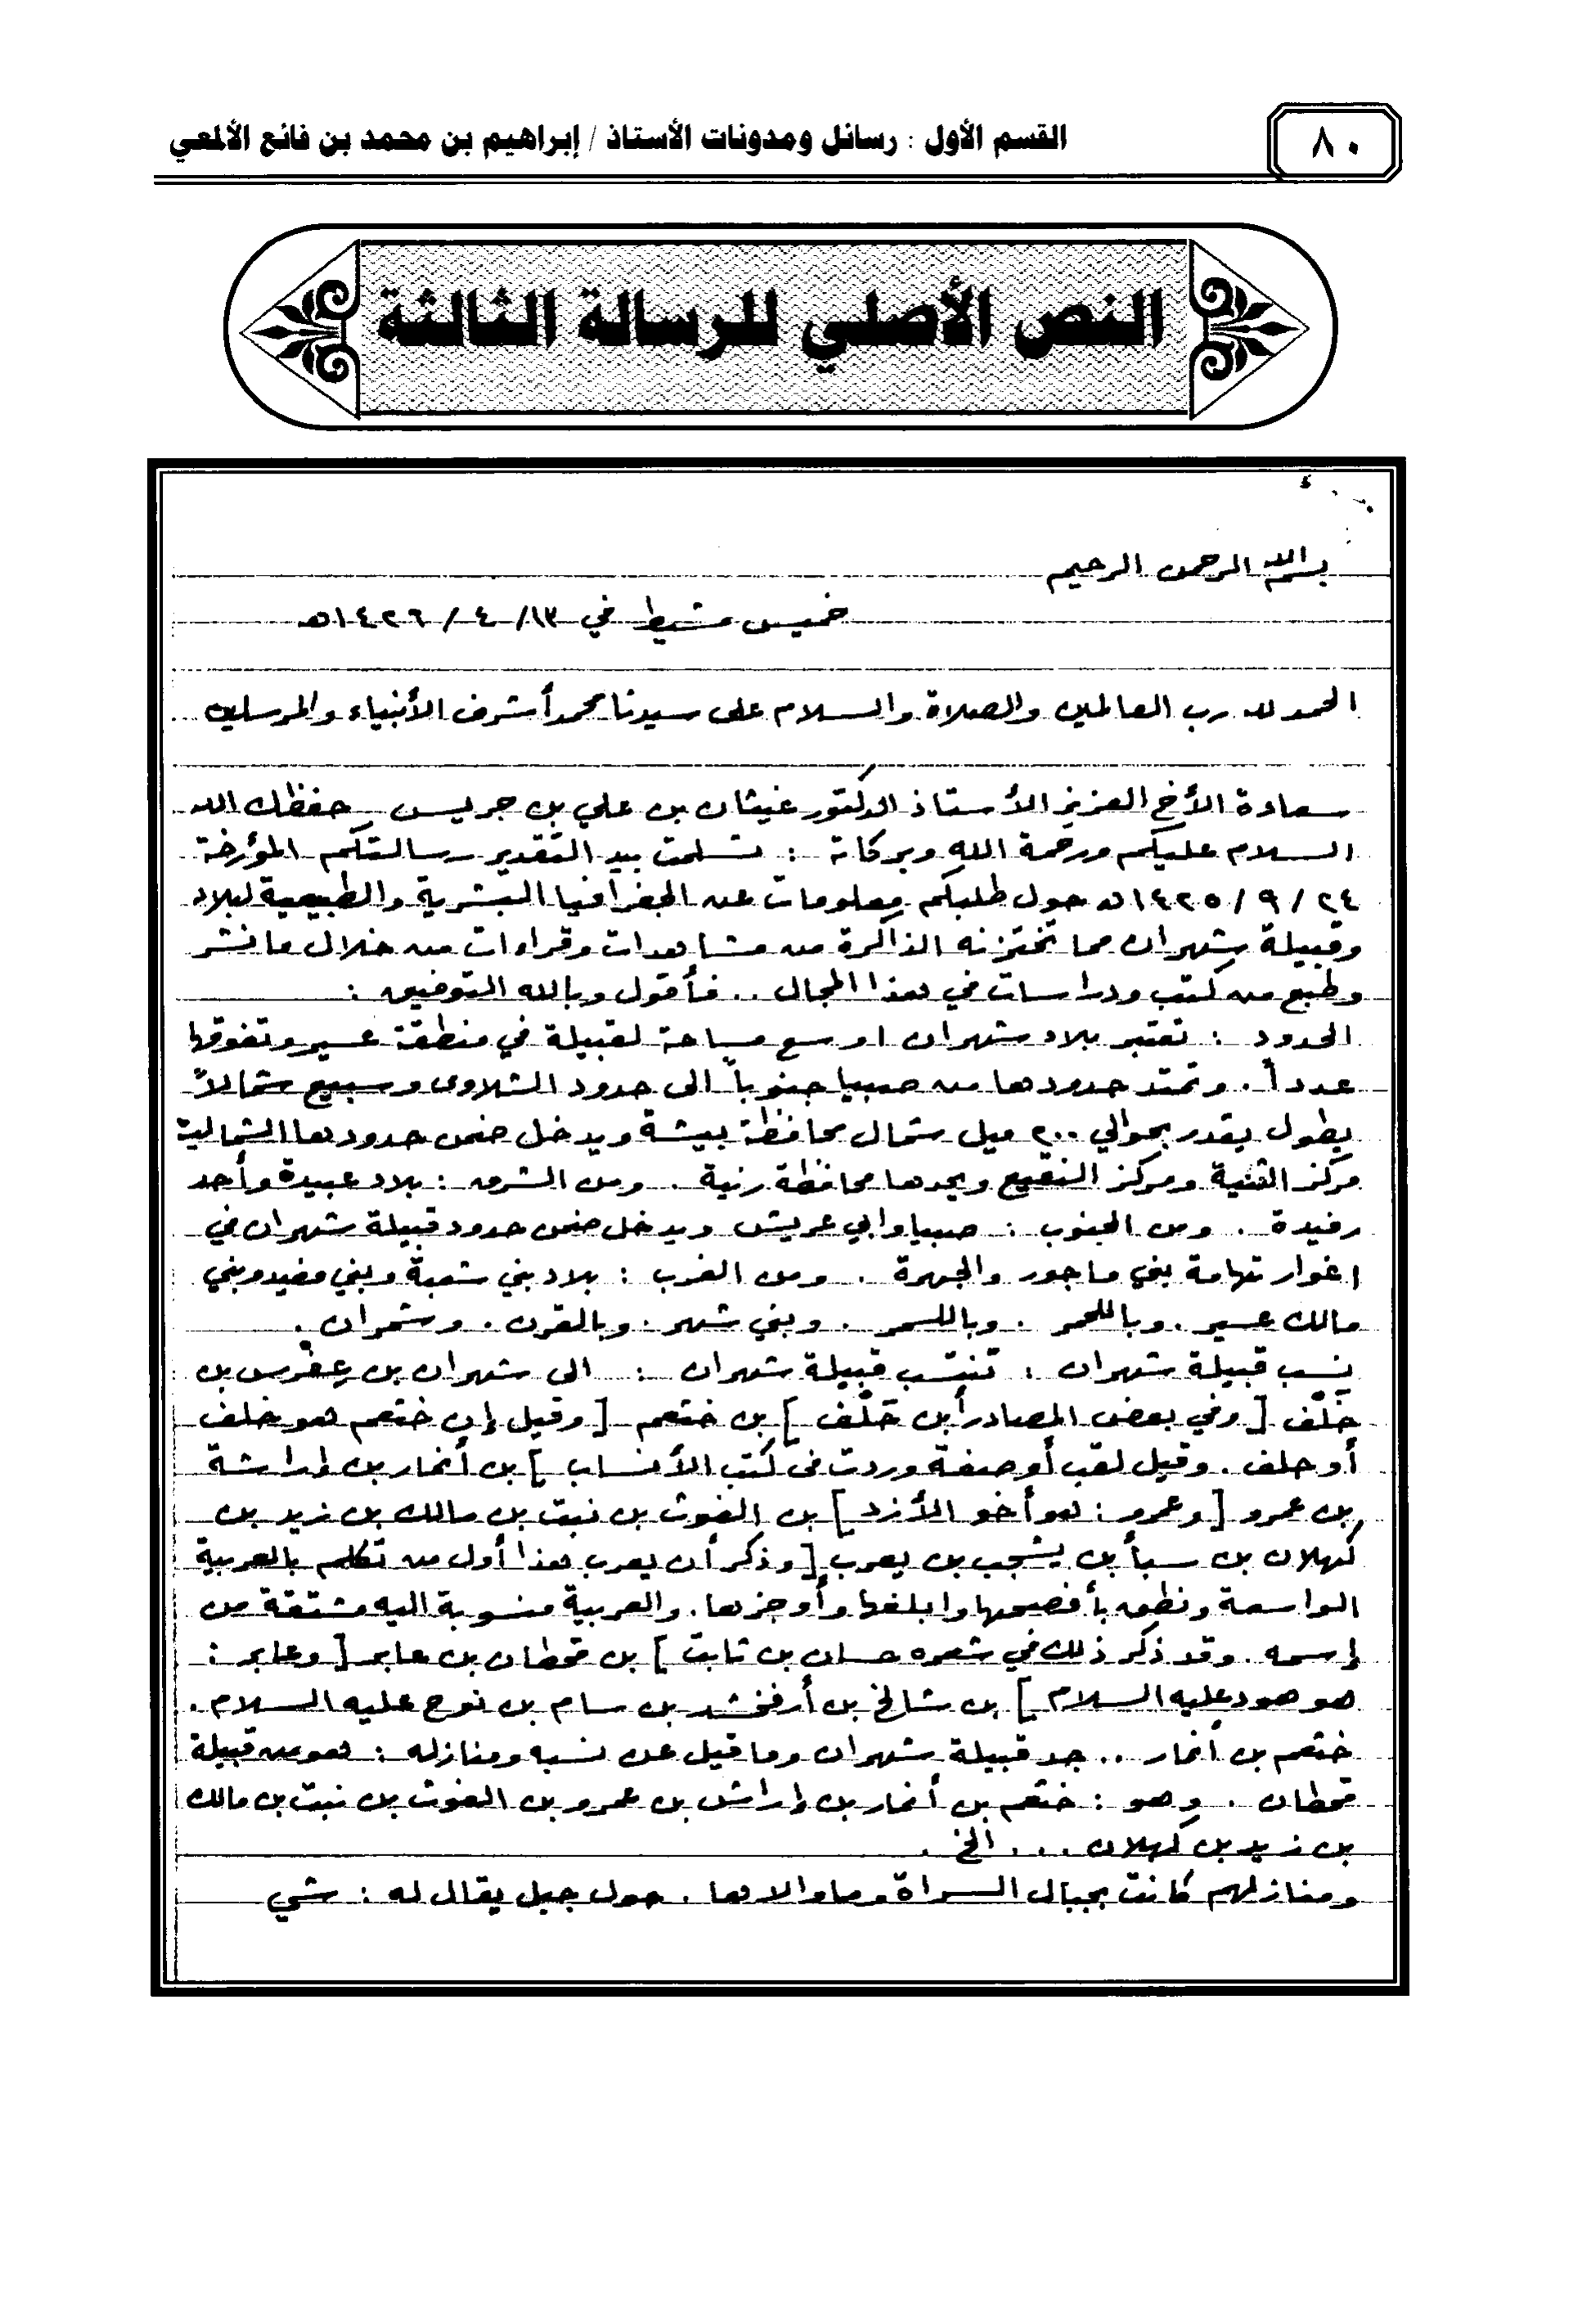 القسم الأول : رسائل ومدونات الأستاذ / إبراهيم بن محمد بن فائع الألمعي
٨٠
النص الأصلي للرسالة الثالثة
بسم الله الرحمن الرحيم
خميس مشيط في ١٣/ ٤ / ١٤٢٦هـ
الحمد لله رب العالمين والصلاة والسلام على سيدنا محمد أشرف الأنبياء والمرسلين
سعادة الأخ العزيز الأستاذ الدكتور غيثان بن علي بن جريس حفظك الله
السلام عليكم ورحمة الله وبركاته : تسلمت بيد التقدير رسالتكم المؤرخة
٢٤ / ٩ / ١٤٢٥هـ حول طلبكم معلومات عن الجغرافيا البشرية والطبيعية لبلاد
وقبيلة شهران مما تختزنه الذاكرة من مشاهدات وقراءات من خلال ما نشر
وطبع من كتب ودراسات في هذا المجال .. فأقول وبالله التوفيق :
الحدود : تعتبر بلاد شهران اوسع مساحة لقبيلة في منطقة عسير وتفوقها
عدداً . وتمتد حدودها من صبيا جنوباً الى حدود الشلاوى وسبيع شمالاً
بطول يقدر بحوالي ٢٠٠ ميل شمال محافظة بيشة ويدخل ضمن حدودها الشمالية
مركز الثنية ومركز النقيع ويحدها محافظة رنية . ومن الشرق : بلاد عبيدة وأحد
رفيدة . ومن الجنوب : صبيا وابي عريش ويدخل ضمن حدود قبيلة شهران في
اغوار تهامة بني ماجور والجهرة . ومن الغرب : بلاد بني شعبة وبني مغيد وبني
مالك عسير . وباللحمر . وباللسمر . وبني شهر . وبالقرن . وشمران .
نسب قبيلة شهران : تنتسب قبيلة شهران : الى شهران بن عِفْرس بن
خَلْف [ وفي بعض المصادر أبن حَلْف ] بن خثعم [ وقيل إن خثعم هو خلف
أو حلف . وقيل لقب أو صفة وردت في كتب الأنساب ] بن أنمار بن إراشة
بن عمرو [ وعمرو : هو أخو الأزد ] بن الغوث بن نبت بن مالك بن زيد بن
كهلان بن سبأ بن يشجب بن يعرب [ وذكر أن يعرب هذا أول من تكلم بالعربية
الواسعة ونطق بأفصحها وابلغها وأوجزها . والعربية منسوبة اليه مشتقة من
إسمه . وقد ذكر ذلك في شعره حسان بن ثابت ] بن قحطان بن عابر [ وعابر :
هو هود عليه السلام ] بن شالخ بن أرفخشد بن سام بن نوح عليه السلام .
خثعم بن أنمار .. جد قبيلة شهران وما قيل عن نسبه ومنازله : هو من قبيلة
قحطان . وهو : خثعم بن أنمار بن إراش بن عمرو بن الغوث بن نبت بن مالك
بن زيد بن كهلان ... الخ .
ومنازلهم كانت بجبال السراة وما والاها . حول جبل يقال له : شي